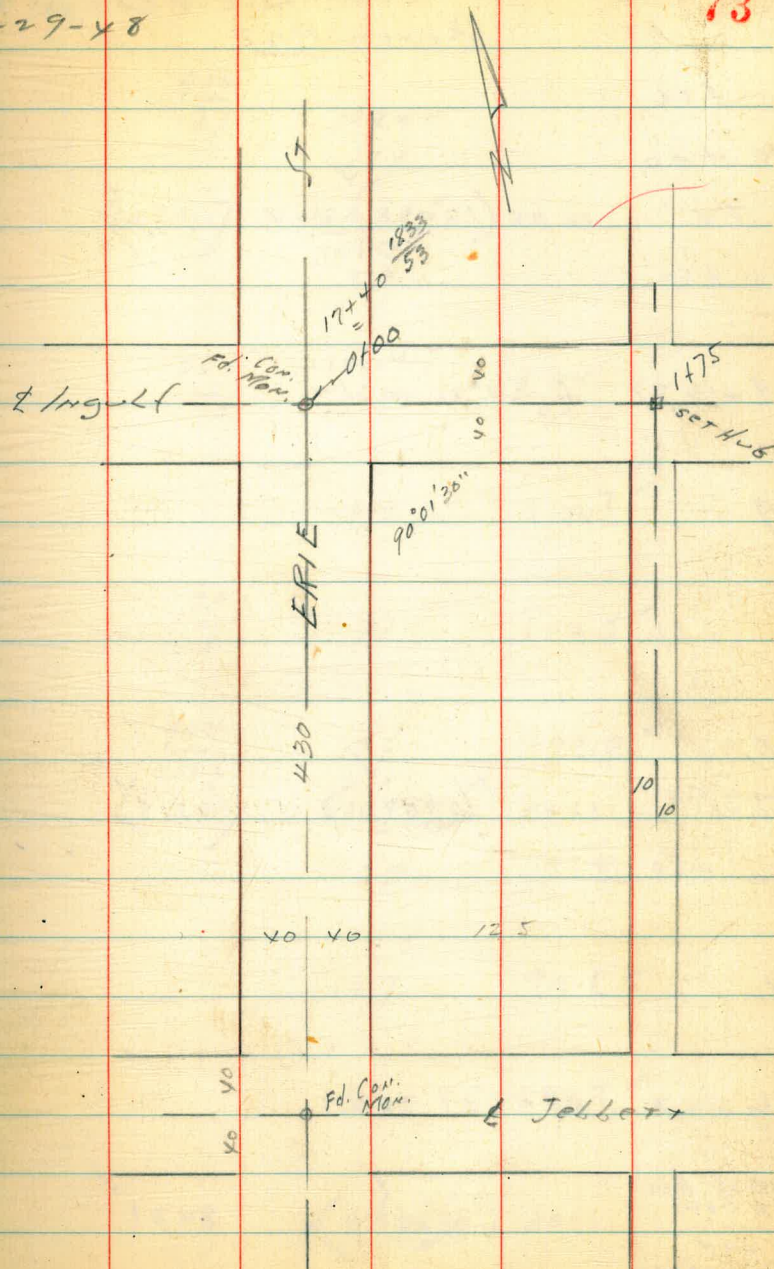 -29-48
73
ST
1833
53
17+40
=
0+00
Fd. Con.
Mon.
℄ Ingulf
40
40
1+75
set Hub
90°01'30"
ERIE
430
10
10
40 40
125
40
40
Fd. Con.
Mon.
℄ Jellett